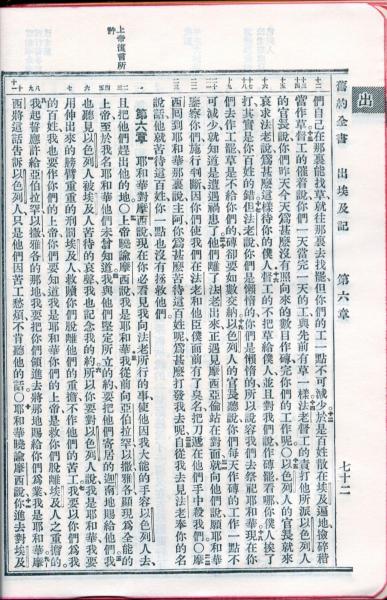 出
舊約全書 出埃及記 第六章 七十二
們自己在那裏能找草就往那裏去找罷但你們的工一點不可減少於是百姓散在埃及遍地撿碎稭
當作草督工的催着說你們一天當完一天的工與先前有草一樣法老督工的責打他所派以色列人
的官長說你們昨天今天爲甚麼沒有照向來的數目作磚完你們的工作呢〇以色列人的官長就來
哀求法老說爲甚麼這樣待你的僕人督工的不把草給僕人並且對我們說作磚罷看哪你僕人挨了
打其實是你百姓的錯但法老說你們是懶惰的你們是懶惰的所以說容我們去祭祀耶和華現在你
們去作工罷草是不給你們的磚卻要如數交納以色列人的官長聽說你們每天作磚的工作一點不
可減少就知道是遭遇禍患了他們離了法老出來正遇見摩西亞倫站在對面就向他們說願耶和華
鑒察你們施行判斷因你們使我們在法老和他臣僕面前有了臭名把刀遞在他們手中殺我們〇摩
西回到耶和華那裏說主阿你爲甚麼苦待這百姓呢爲甚麼打發我去呢自從我去見法老奉你的名
說話他就苦待這百姓你一點也沒有拯救他們
第六章 耶和華對摩西說現在你必看見我向法老所行的事使他因我大能的手容以色列人去
且把他們趕出他的地〇上帝曉諭摩西說我是耶和華我從前向亞伯拉罕以撒雅各顯現爲全能的
上帝至於我名耶和華他們未曾知道我與他們堅定所立的約要把他們寄居的迦南地賜給他們我
也聽見以色列人被埃及人苦待的哀聲我也記念我的約所以你要對以色列人說我是耶和華我要
用伸出來的膀臂重重的刑罰埃及人救贖你們脫離他們的重擔不作他們的苦工我要以你們爲我
的百姓我也要作你們的上帝你們要知道我是耶和華你們的上帝是救你們脫離埃及人之重擔的
我起誓應許給亞伯拉罕以撒雅各的那地我要把你們領進去將那地賜給你們爲業我是耶和華摩
西將這話告訴以色列人只是他們因苦工愁煩不肯聽他的話〇耶和華曉諭摩西說你進去對埃及